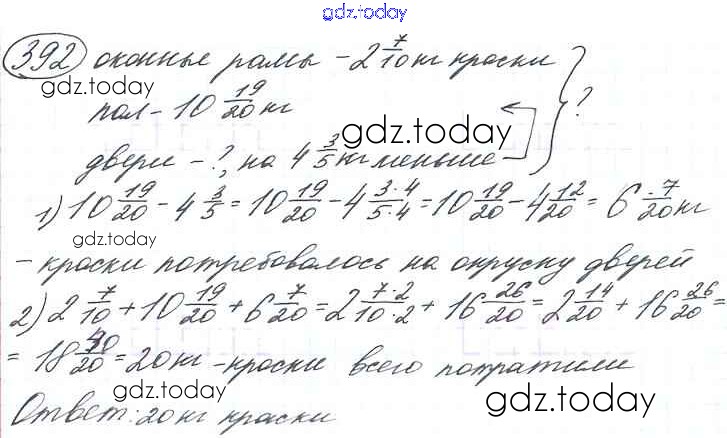 gdz.today
392 оконные рамы - 2 7/10 кг краски
gdz.today
пол - 10 19/20 кг
}?
gdz.today
двери - ?, на 4 3/5 кг меньше
1) 10 19/20 - 4 3/5 = 10 19/20 - 4 3·4/5·4 = 10 19/20 - 4 12/20 = 6 7/20 кг
gdz.today
- краски потребовалось на окруску дверей
2) 2 7/10 + 10 19/20 + 6 7/20 = 2 7·2/10·2 + 16 26/20 = 2 14/20 + 16 26/20 =
= 18 40/20 = 20 кг - краски всего потратили
gdz.today
gdz.today
Ответ: 20 кг краски